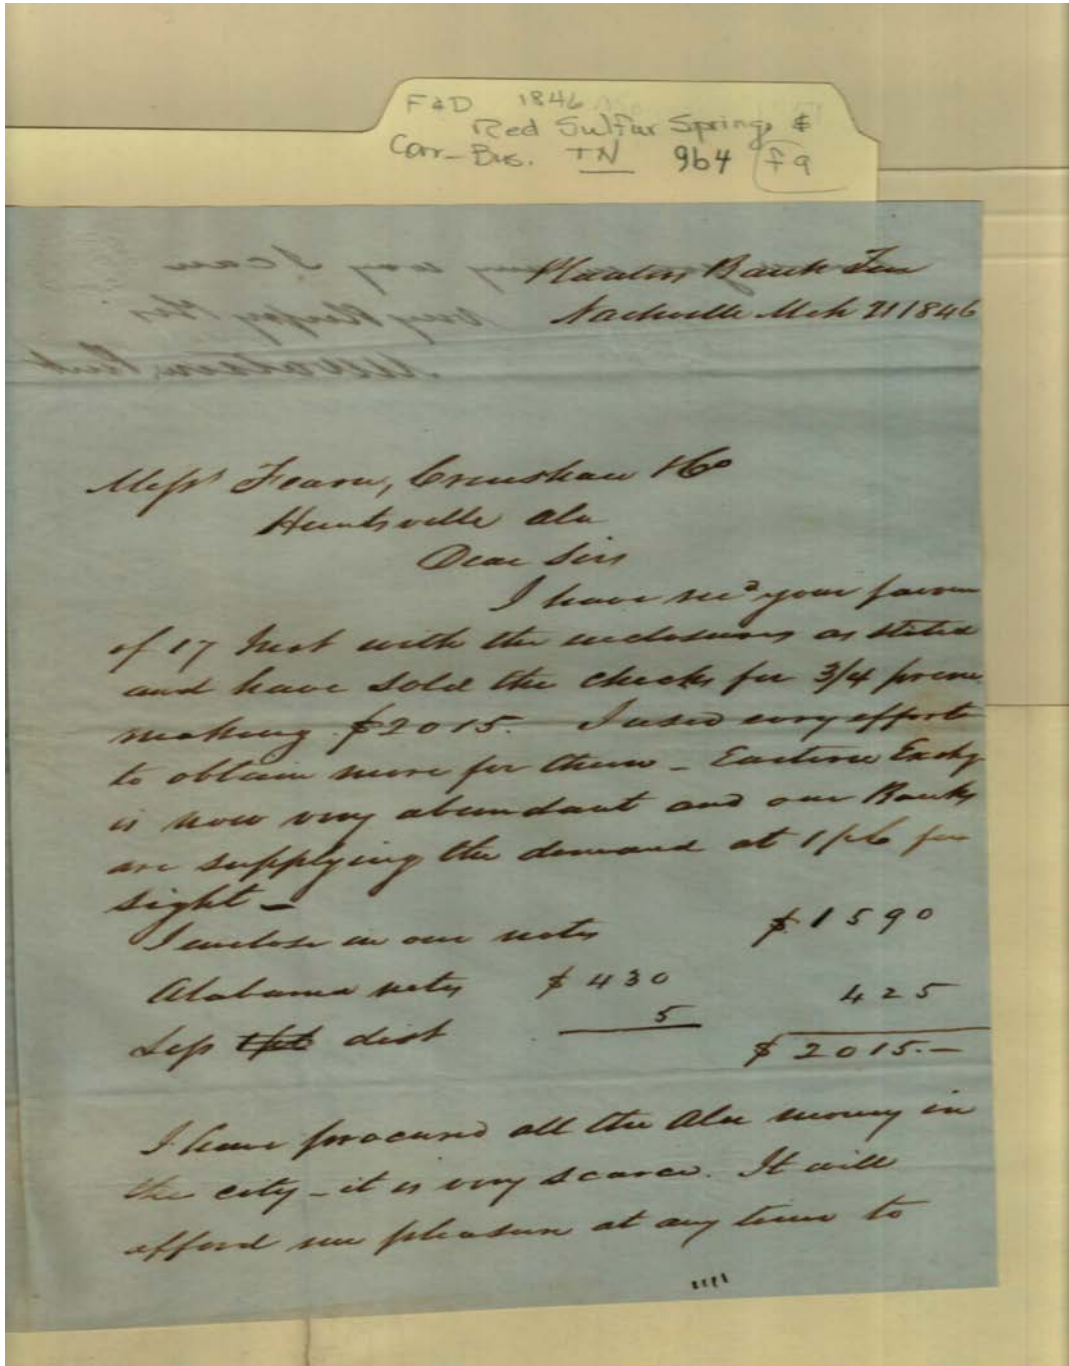 F&D 1846
Red Sulfur Springs &
Corr-Bus. TN 964 F9
Planters Bank Ten
Nashville Mch 21 1846
Messrs Fearn, Crenshaw & Co
Huntsville Ala
Dear Sirs
I have recd your favour
of 17 Inst with the inclosures as stated
and have sold the checks for 3/4 prem
making $2015. I used every effort
to obtain more for them _ Eastern Exchg
is now very abundant and our Banks
are supplying the demand at 1 pc for
sight _
I enclose in our notes $1590
Alabama notes $430 425
Less dist 5 $2015.—
I have procured all the Ala money in
the city _ it is very scarce. It will
afford me pleasure at any time to